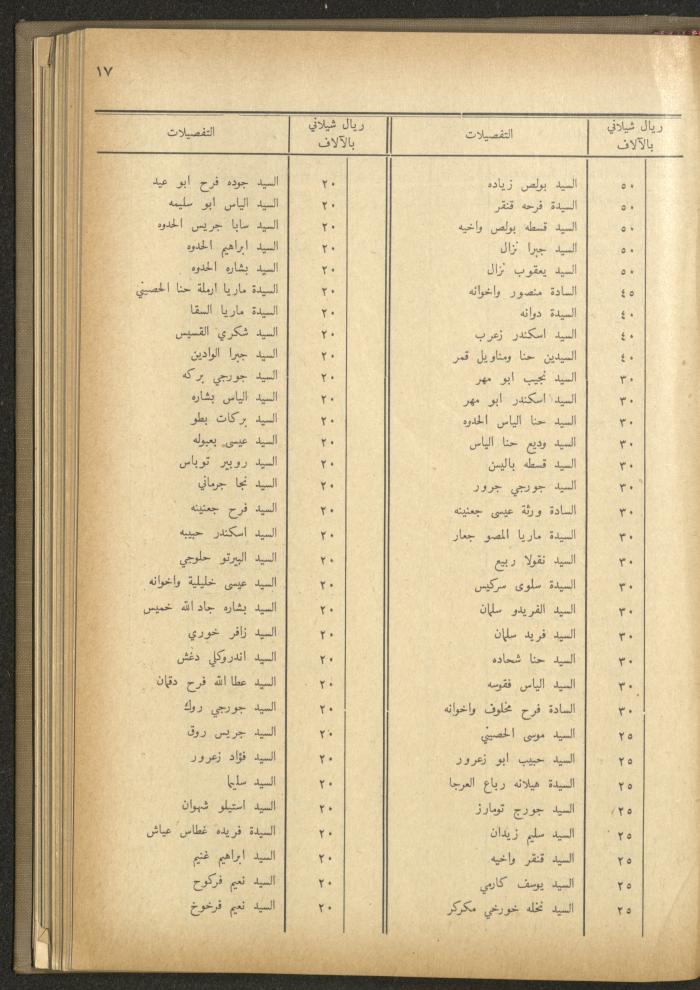 ١٧
ريال شيلاني بالآلاف | التفصيلات
٥٠ السيد بولص زياده
٥٠ السيدة فرحه قنقر
٥٠ السيد قسطه بولص واخيه
٥٠ السيد جبرا نزال
٥٠ السيد يعقوب نزال
٤٥ السادة منصور واخوانه
٤٠ السيدة دوانه
٤٠ السيد اسكندر زعرب
٤٠ السيدين حنا ومناويل قمر
٣٠ السيد نجيب ابو مهر
٣٠ السيد اسكندر ابو مهر
٣٠ السيد حنا الياس الحدوه
٣٠ السيد وديع حنا الياس
٣٠ السيد قسطه باليسن
٣٠ السيد جورجي جرور
٣٠ السادة ورثة عيسى جعنينه
٣٠ السيدة ماريا المصو جعار
٣٠ السيد نقولا ربيع
٣٠ السيدة سلوى سركيس
٣٠ السيد الفريدو سلمان
٣٠ السيد فريد سلمان
٣٠ السيد حنا شحاده
٣٠ السيد الياس فقوسه
٣٠ السادة فرح مخلوف واخوانه
٢٥ السيد موسى الحصيني
٢٥ السيد حبيب ابو زعرور
٢٥ السيدة هيلانه رباع العرجا
٢٥ السيد جورج تومارز
٢٥ السيد سليم زيدان
٢٥ السيد قنقر واخيه
٢٥ السيد يوسف كارمي
٢٥ السيد نخله خورخي مكركر
ريال شيلاني بالآلاف | التفصيلات
٢٠ السيد جوده فرح ابو عيد
٢٠ السيد الياس ابو سليمه
٢٠ السيد سابا جريس الحدوه
٢٠ السيد ابراهيم الحدوه
٢٠ السيد بشاره الحدوه
٢٠ السيدة ماريا ارملة حنا الحصيني
٢٠ السيدة ماريا السقا
٢٠ السيد شكري القسيس
٢٠ السيد جبرا الوادين
٢٠ السيد جورجي بركه
٢٠ السيد الياس بشاره
٢٠ السيد بركات بطو
٢٠ السيد عيسى بعبوله
٢٠ السيد روبير توباس
٢٠ السيد نجا جرماني
٢٠ السيد فرح جعنينه
٢٠ السيد اسكندر حبيبه
٢٠ السيد البيرتو حلوجي
٢٠ السيد عيسى خليلية واخوانه
٢٠ السيد بشاره جاد الله خميس
٢٠ السيد زافر خوري
٢٠ السيد اندروكلي دغش
٢٠ السيد عطا الله فرح دقمان
٢٠ السيد جورجي روك
٢٠ السيد جريس روق
٢٠ السيد فؤاد زعرور
٢٠ السيد سليما
٢٠ السيد استيلو شهوان
٢٠ السيدة فريده غطاس عياش
٢٠ السيد ابراهيم غنيم
٢٠ السيد نعيم فركوح
٢٠ السيد نعيم فرخوخ